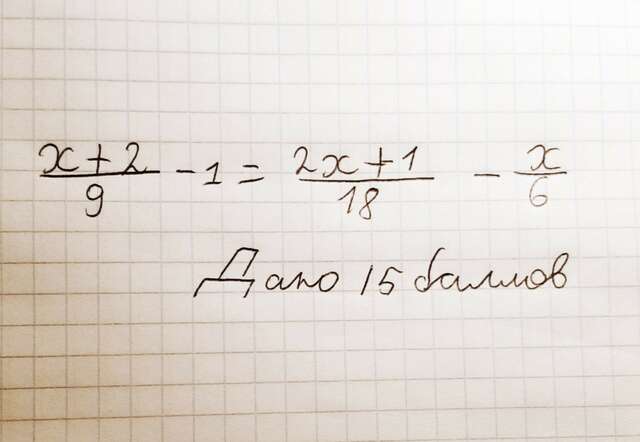 (x+2)/9 - 1 = (2x+1)/18 - x/6
Дано 15 баллов